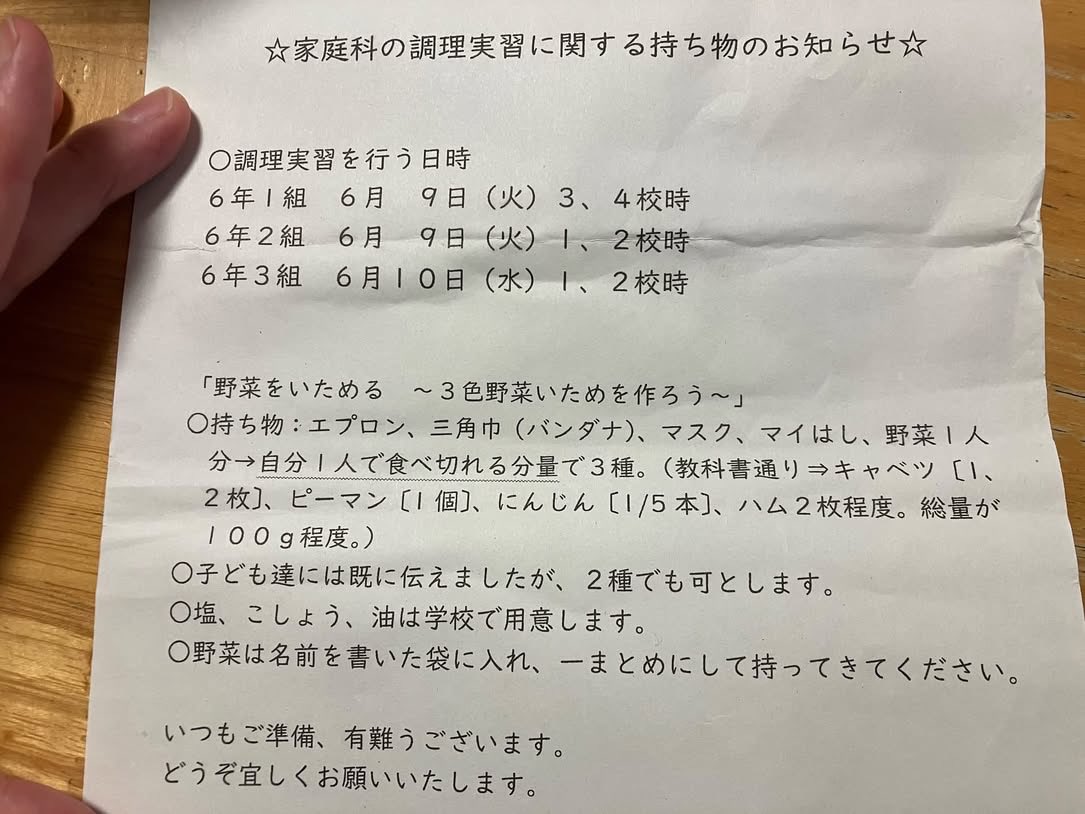 ☆家庭科の調理実習に関する持ち物のお知らせ☆
〇調理実習を行う日時
６年１組　６月　９日（火）３、４校時
６年２組　６月　９日（火）１、２校時
６年３組　６月１０日（水）１、２校時
「野菜をいためる　～３色野菜いためを作ろう～」
〇持ち物：エプロン、三角巾（バンダナ）、マスク、マイはし、野菜１人
分→自分１人で食べ切れる分量で３種。（教科書通り⇒キャベツ〔１、
２枚〕、ピーマン〔１個〕、にんじん〔1/5本〕、ハム２枚程度。総量が
１００ｇ程度。）
〇子ども達には既に伝えましたが、２種でも可とします。
〇塩、こしょう、油は学校で用意します。
〇野菜は名前を書いた袋に入れ、一まとめにして持ってきてください。
いつもご準備、有難うございます。
どうぞ宜しくお願いいたします。